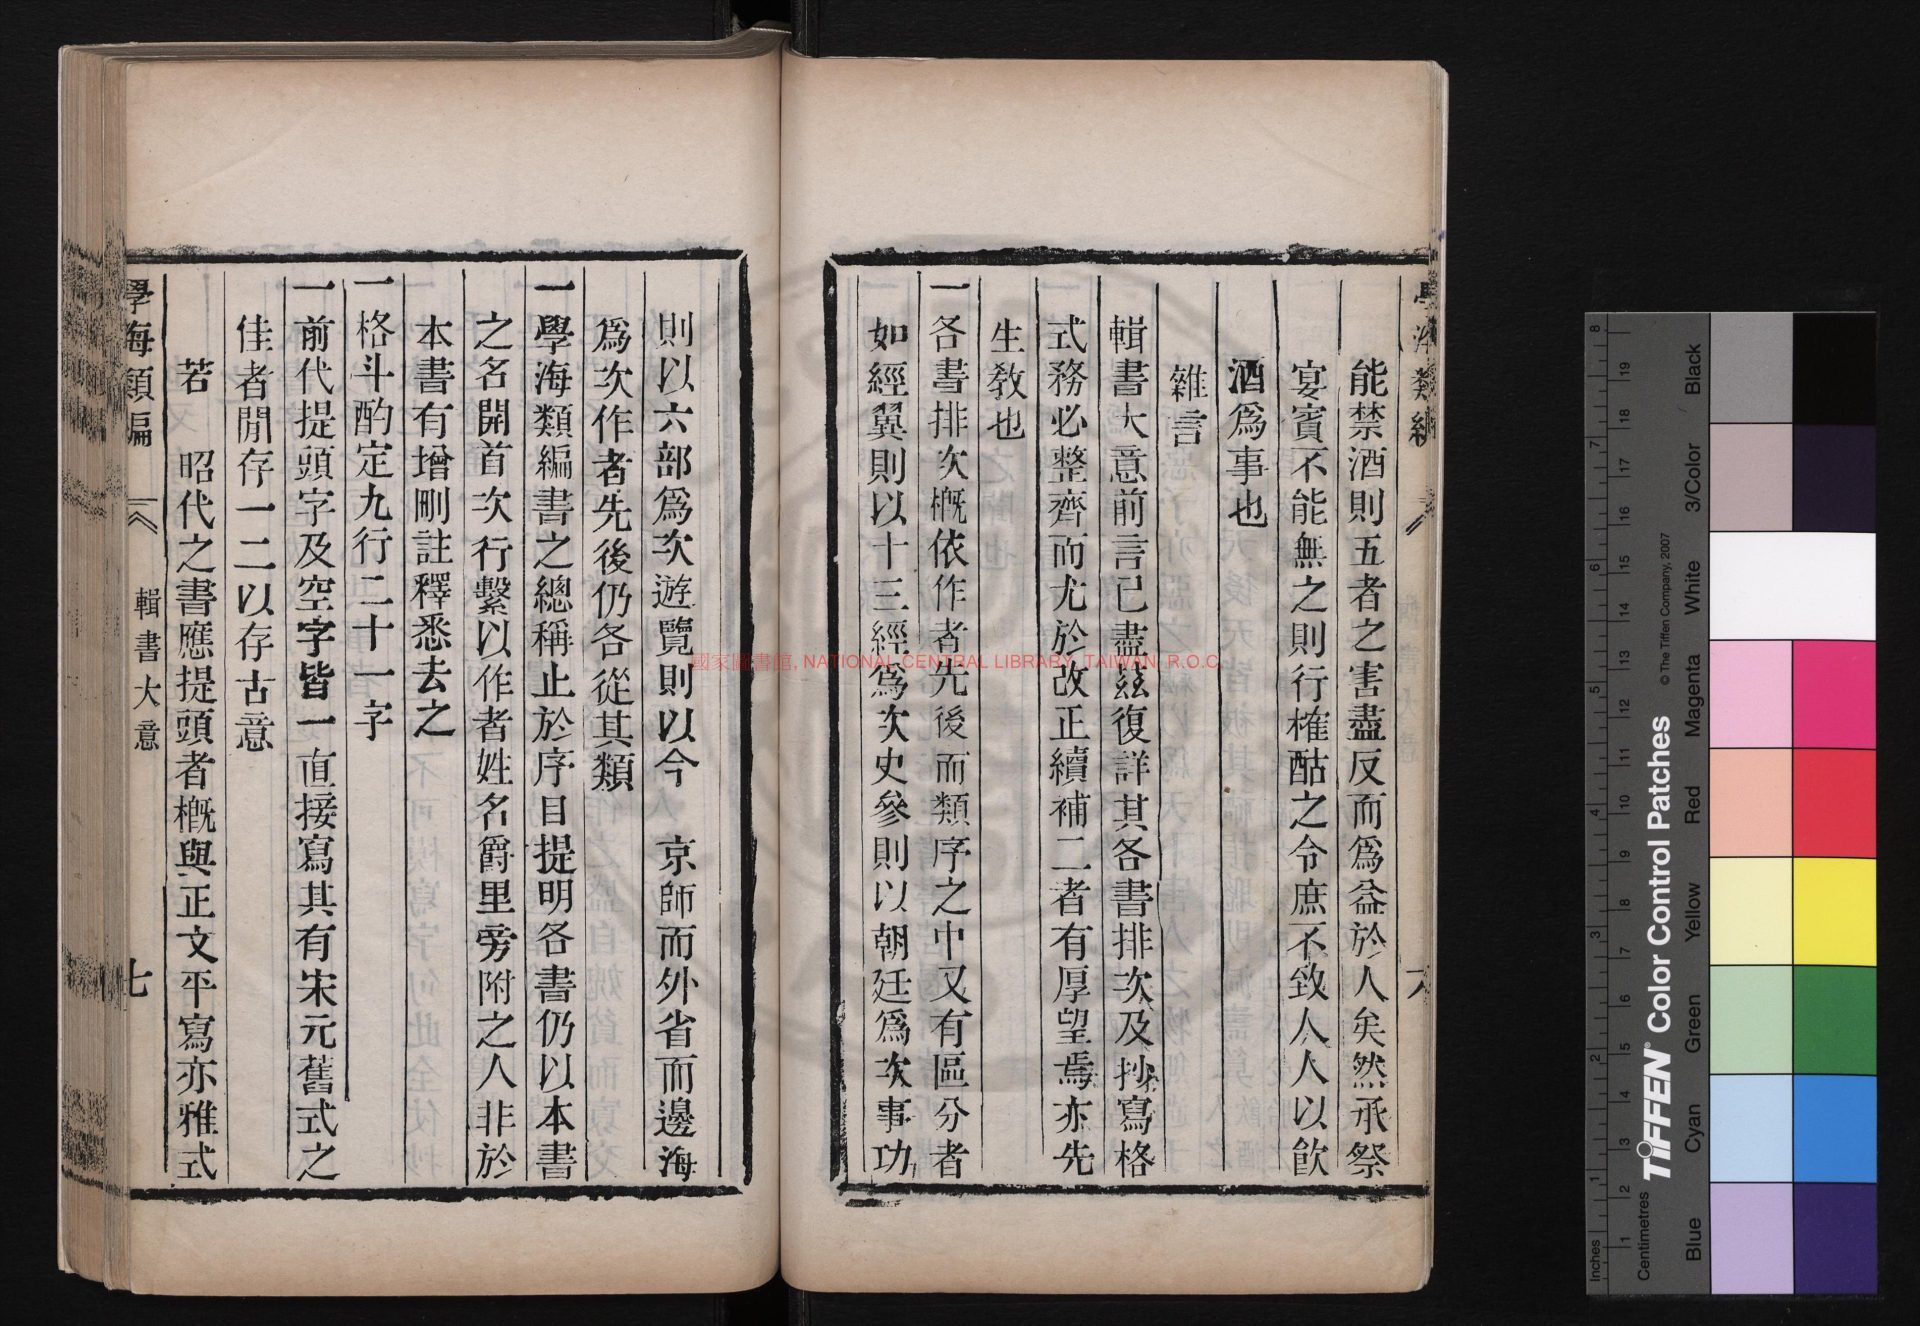 能禁酒則五者之害盡反而爲益於人矣然承祭
宴賓不能無之則行榷酤之令庶不致人人以飮
酒爲事也
雜言
輯書大意前言已盡玆復詳其各書排次及抄寫格
式務必整齊而尤於改正續補二者有厚望焉亦先
生敎也
一各書排次槪依作者先後而類序之中又有區分者
如經翼則以十三經爲次史參則以朝廷爲次事功
則以六部爲次遊覽則以今　京師而外省而邊海
爲次作者先後仍各從其類
一學海類編書之總稱止於序目提明各書仍以本書
之名開首次行繫以作者姓名爵里旁附之人非於
本書有增刪註釋悉去之
一格斗酌定九行二十一字
一前代提頭字及空字皆一直接寫其有宋元舊式之
佳者閒存一二以存古意
若　昭代之書應提頭者槪與正文平寫亦雅式
學海類編
輯書大意
七
國家圖書館, NATIONAL CENTRAL LIBRARY, TAIWAN, R.O.C.
TIFFEN® Color Control Patches
© The Tiffen Company, 2007
Inches
Centimetres
Blue
Cyan
Green
Yellow
Red
Magenta
White
3/Color
Black